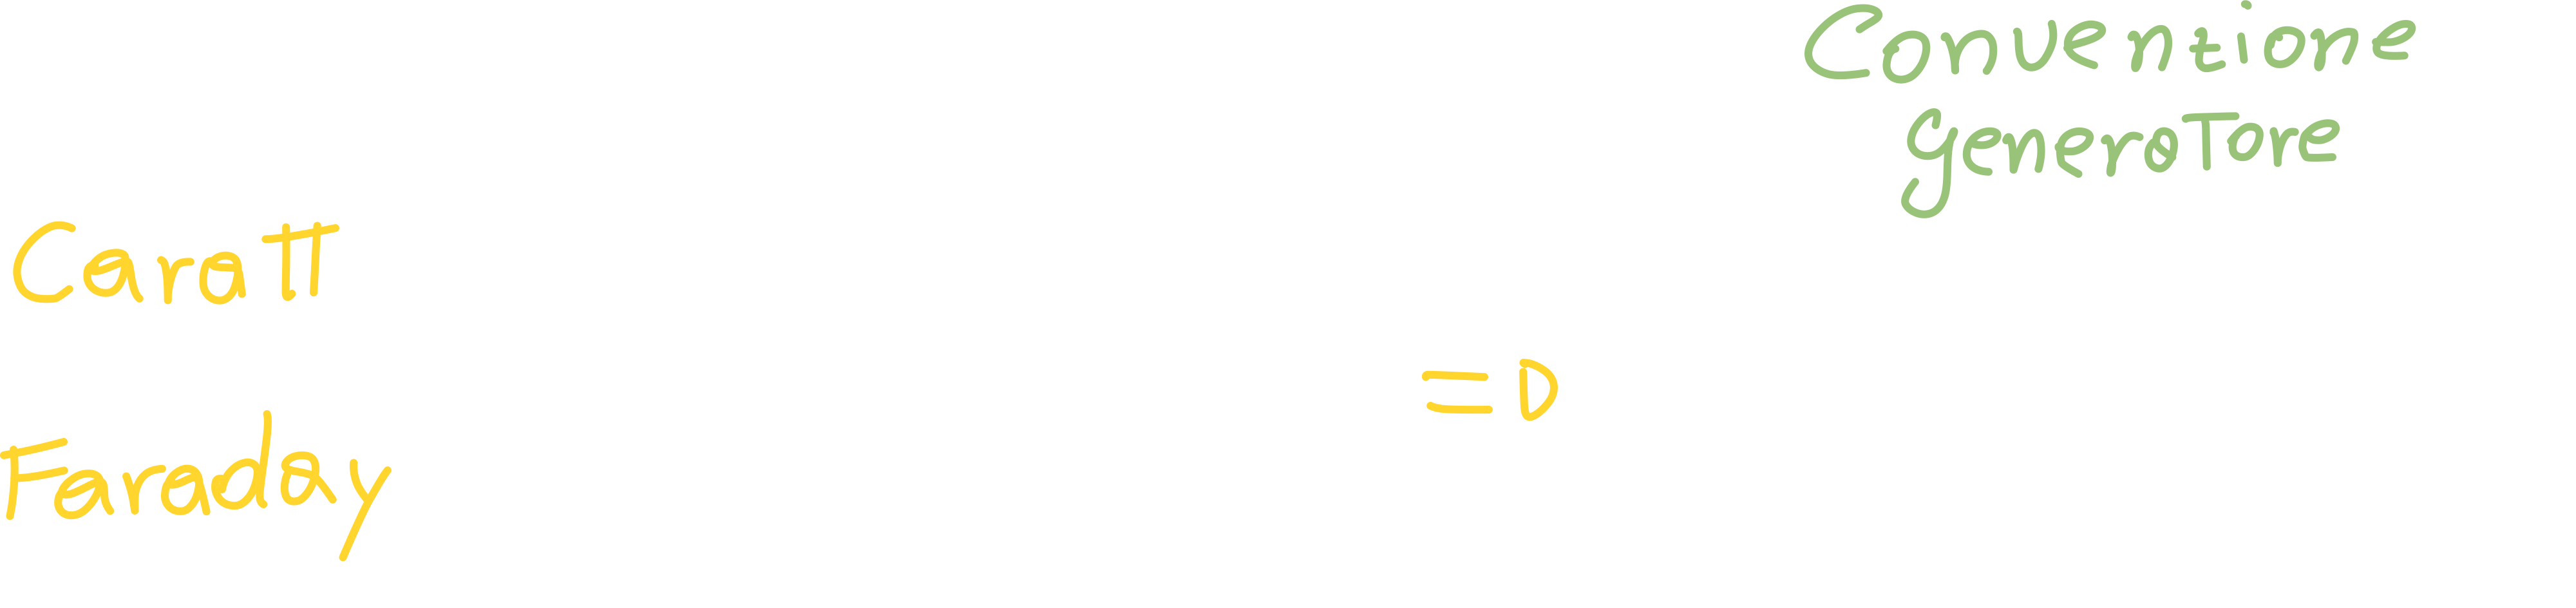 Conventione
generaTore
CaraTT
=D
Faraday